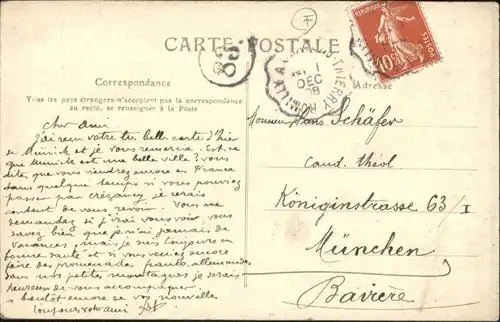 CARTE POSTALE
Correspondance
Tous les pays étrangers n'acceptent pas la correspondance
au recto, se renseigner à la Poste
Adresse
1
DEC
08
10c
POSTES
Cher ami
J'ai reçu votre belle carte d'hier
de Munich et je vous remercie. Est-ce
que Munich est une belle ville? vous
dites, que vous viendrez encore en France
dans quelque temps si vous pouviez
passer par Crézancy je serais
content de vous revoir. Vous me
demandez si j'irai vous voir vous
savez bien que je n'ai jamais de
vacances, mais je suis toujours en
bonne santé et si vous veniez encore
faire des promenades
dans nos petites montagnes je serais
heureux de vous accompagner
à bientôt encore de vos nouvelles
toujours votre ami
Monsieur Hans Schäfer
cand. théol
Königinstrasse 63/I
München
Bavière